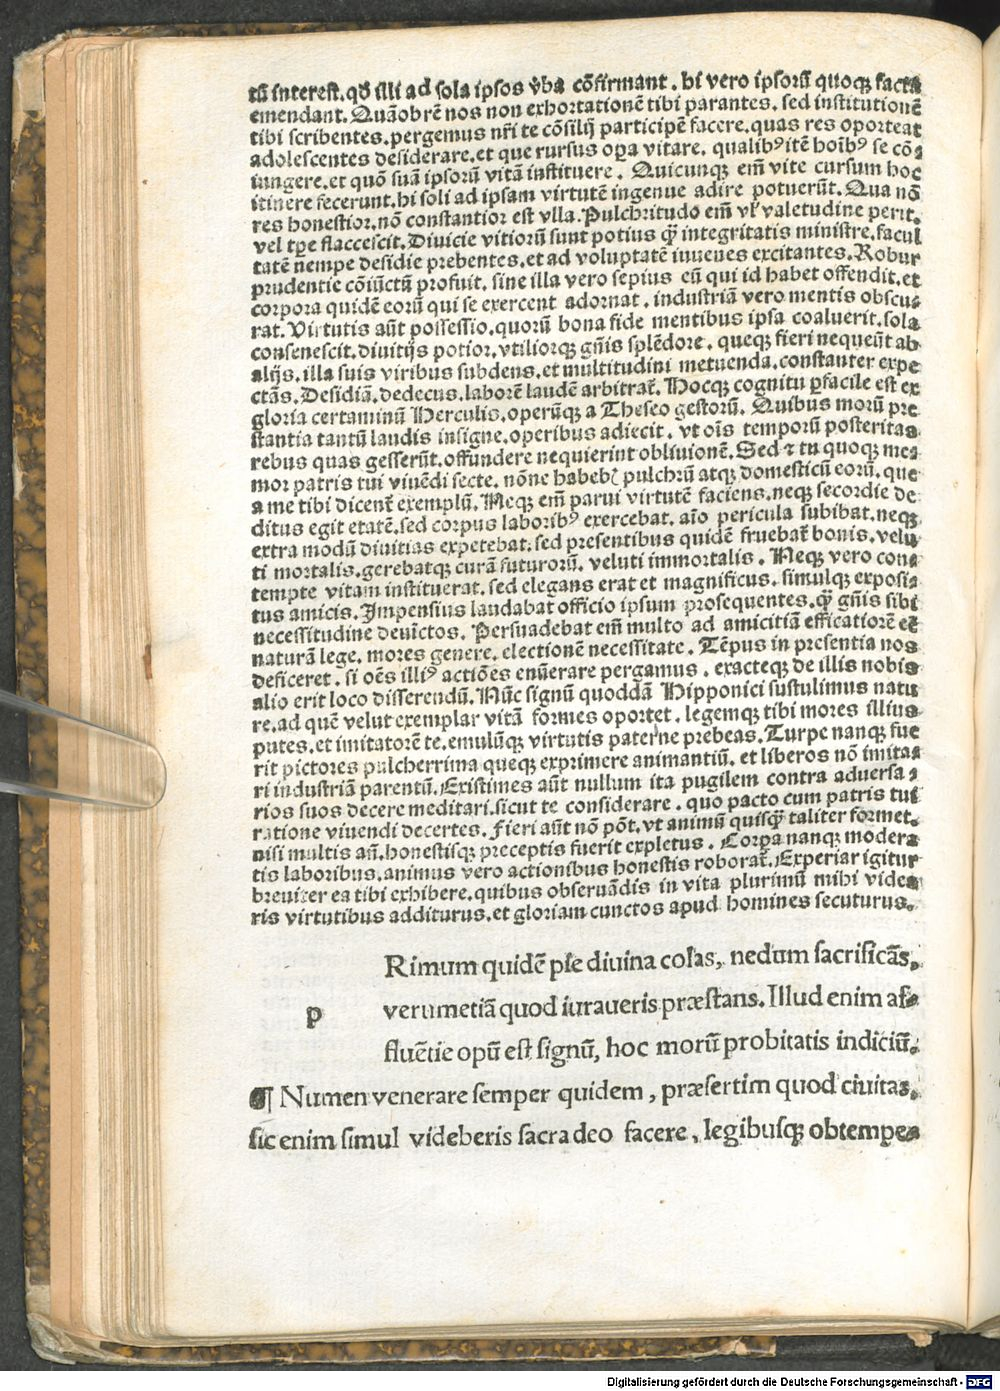 tũ interest. qd̕ illi ad sola ipsos v̓ba cõfirmant. hi vero ipsorũ quoqꝫ facta
emendant. Quãobrẽ nos non exhortationẽ tibi parantes. sed institutionẽ
tibi scribentes. pergemus nr̃i te cõsilij participẽ facere. quas res oporteat
adolescentes desiderare. et que rursus oꝑa vitare. qualibꝰ itẽ hoĩbꝰ se cõ⸗
iungere. et quõ suã ipsorũ vitã instituere. Quicunqꝫ em̃ vite cursum hoc
itinere fecerunt. hi soli ad ipsam virtutẽ ingenue adire potuerũt. Qua nõ
res honestior. nõ constantior est vlla. Pulchritudo em̃ vl̕ valetudine perit.
vel tꝑe flaccescit. Diuicie vitiorũ sunt potius q̃ꝫ integritatis ministre. facul
tatẽ nempe desidie prebentes. et ad voluptatẽ iuuenes excitantes. Robur
prudentie cõiũctũ profuit. sine illa vero sepius eũ qui id habet offendit. et
corpora quidẽ eorũ qui se exercent adornat. industriã vero mentis obscu⸗
rat. Virtutis aũt possessio. quorũ bona fide mentibus ipsa coaluerit. sola
consenescit. diuitijs potior. vtiliorqꝫ gñis splẽdore. queqꝫ fieri nequeũt ab
alijs. illa suis viribus subdens. et multitudini metuenda. constanter expe
ctãs. Desidiã. dedecus. laborẽ laudẽ arbitrat᷑. Hocqꝫ cognitu ꝑfacile est ex
gloria certaminũ Herculis. operũqꝫ a Theseo gestorũ. Quibus morũ pre
stantia tantũ laudis insigne. operibus adiecit. vt oĩs temporũ posteritas
rebus quas gesserũt. offundere nequierint obliuionẽ. Sed ⁊ tu quoqꝫ me⸗
mor patris tui viuẽdi secte. nõne habebis pulchrũ atqꝫ domesticũ eorũ. que
a me tibi dicent᷑ exemplũ. Neqꝫ em̃ parui virtutẽ faciens. neqꝫ secordie de
ditus egit etatẽ. sed corpus laboribꝰ exercebat. aĩo pericula subibat. neqꝫ
extra modũ diuitias expetebat. sed presentibus quidẽ fruebat᷑ bonis. velu
ti mortalis. gerebatqꝫ curã futurorũ. veluti immortalis. Neqꝫ vero con⸗
tempte vitam instituerat. sed elegans erat et magnificus. simulqꝫ exposi⸗
tus amicis. Impensius laudabat officio ipsum prosequentes. q̃ꝫ gñis sibi
necessitudine deuĩctos. Persuadebat em̃ multo ad amicitiã efficatiorẽ eẽ
naturã lege. mores genere. electionẽ necessitate. Tẽpus in presentia nos
deficeret. si oẽs illiꝰ actiões enũerare pergamus. exacteqꝫ de illis nobis
alio erit loco disserendũ. Nũc signũ quoddã Hipponici sustulimus natu
re. ad quẽ velut exemplar vitã formes oportet. legemqꝫ tibi mores illius
putes. et imitatorẽ te. emulũqꝫ virtutis paterne prebeas. Turpe nanqꝫ fue
rit pictores pulcherrima queqꝫ exprimere animantiũ. et liberos nõ imita⸗
ri industriã parentũ. Existimes aũt nullum ita pugilem contra aduersa⸗
rios suos decere meditari. sicut te considerare. quo pacto cum patris tui
ratione viuendi decertes. Fieri aũt nõ põt. vt animũ quisqꝫ taliter formet.
nisi multis aũ. honestisqꝫ preceptis fuerit expletus. Corpa nanqꝫ modera
tis laboribus. animus vero actionibus honestis roborat᷑. Experiar igitur
breuiter ea tibi exhibere. quibus obseruãdis in vita plurimũ mihi vide⸗
ris virtutibus additurus. et gloriam cunctos apud homines secuturus.
Rimum quidẽ pie diuina colas, nedum sacrificãs,
p verumetiã quod iuraueris præstans. Illud enim af⸗
fluẽtie opũ est signũ, hoc morũ probitatis indiciũ.
¶ Numen venerare semper quidem, præsertim quod ciuitas,
sic enim simul videberis sacra deo facere, legibusqꝫ obtempe⸗
Digitalisierung gefördert durch die Deutsche Forschungsgemeinschaft - DFG